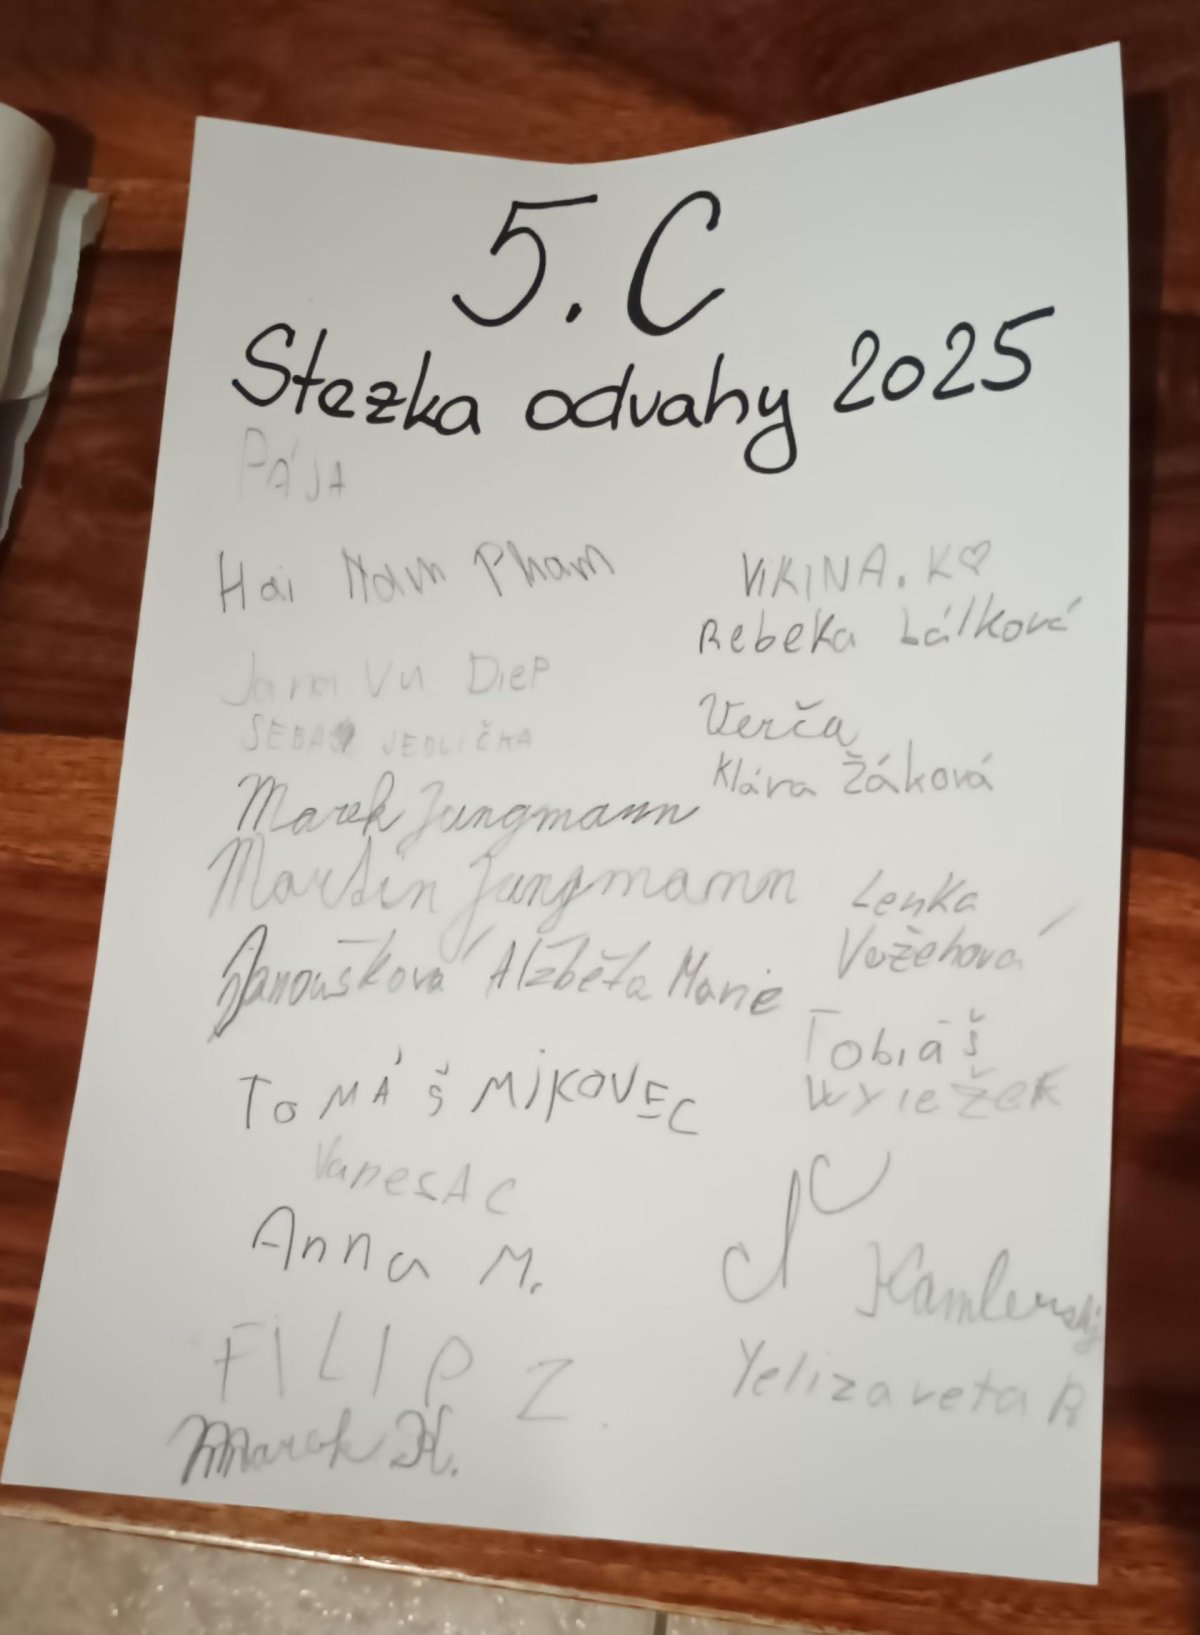 5.C
Stezka odvahy 2025
PÁJA
Hai Nam Pham
Jana Vu Diep
SEBA JEDLIČKA
Marek Jungmann
Martin Jungmann
Janoušková Alžběta Marie
TOMÁŠ MIKOVEC
VanesA C
Anna M.
FILIP Z.
Marek H.
ViKINA.K♡
Rebeka Lálková
Verča
Klára Žáková
Lenka
Vožehová
Tobiáš
Wyležek
Kamlerský
Yelizaveta R